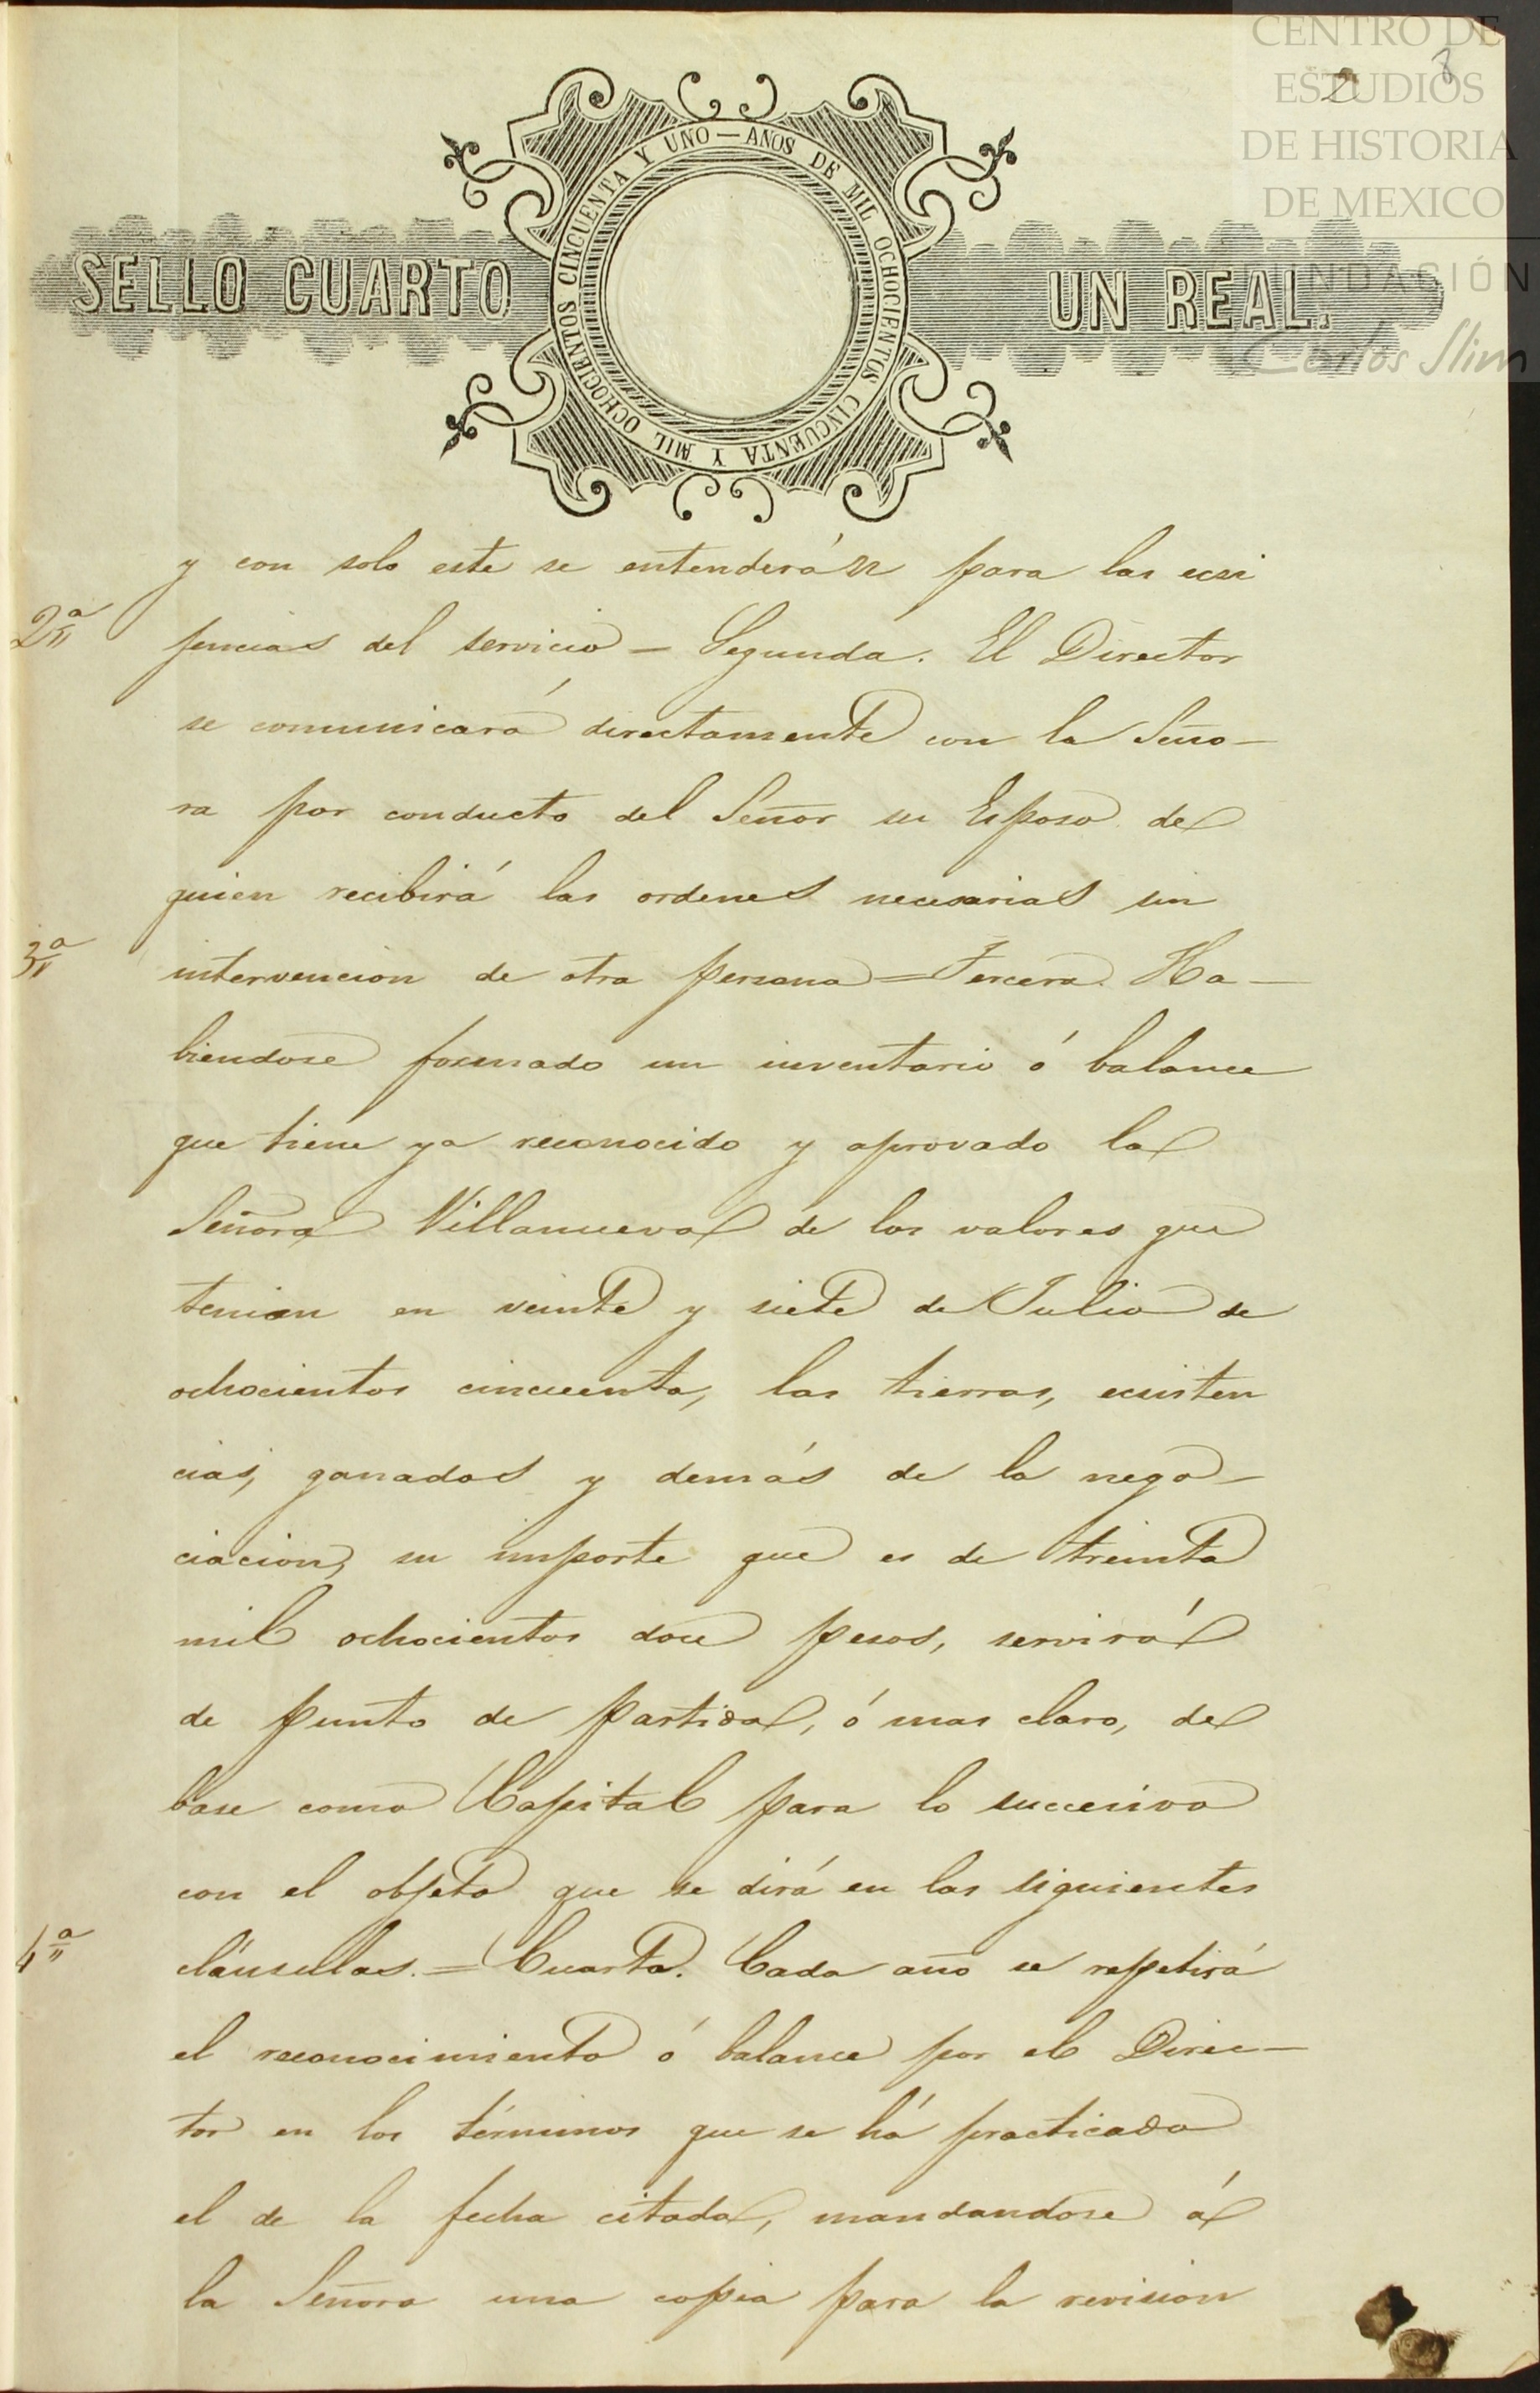 CENTRO DE
ESTUDIOS
DE HISTORIA
DE MEXICO
FUNDACIÓN
Carlos Slim
SELLO CUARTO
AÑOS DE MIL OCHOCIENTOS CINCUENTA Y MIL OCHOCIENTOS CINCUENTA Y UNO —
UN REAL.
y con solo este se entenderán para las ecsi
2ª gencias del servicio = Segunda. El Director
se comunicará directamente con la Seño-
ra por conducto del Señor su Esposo de
quien recibirá las ordenes necesarias sin
3ª intervencion de otra persona = Tercera. Ha-
biendose formado un inventario ó balance
que tiene ya reconocido y aprovado la
Señora Villanueva de los valores que
tenian en veinte y siete de Julio de
ochocientos cincuenta, las tierras, ecsisten
cias, ganados y demás de la nego-
ciacion, su importe que es de treinta
mil ochocientos doce pesos, servirá
de punto de partida, ó mas claro, de
base como Capital para lo succesivo
con el objeto que se dirá en las siguientes
4ª cláusulas. = Cuarta. Cada año se repetirá
el reconocimiento ó balance por el Direc-
tor en los términos que se há practicado
el de la fecha citada, mandandose á
la Señora una copia para la revision